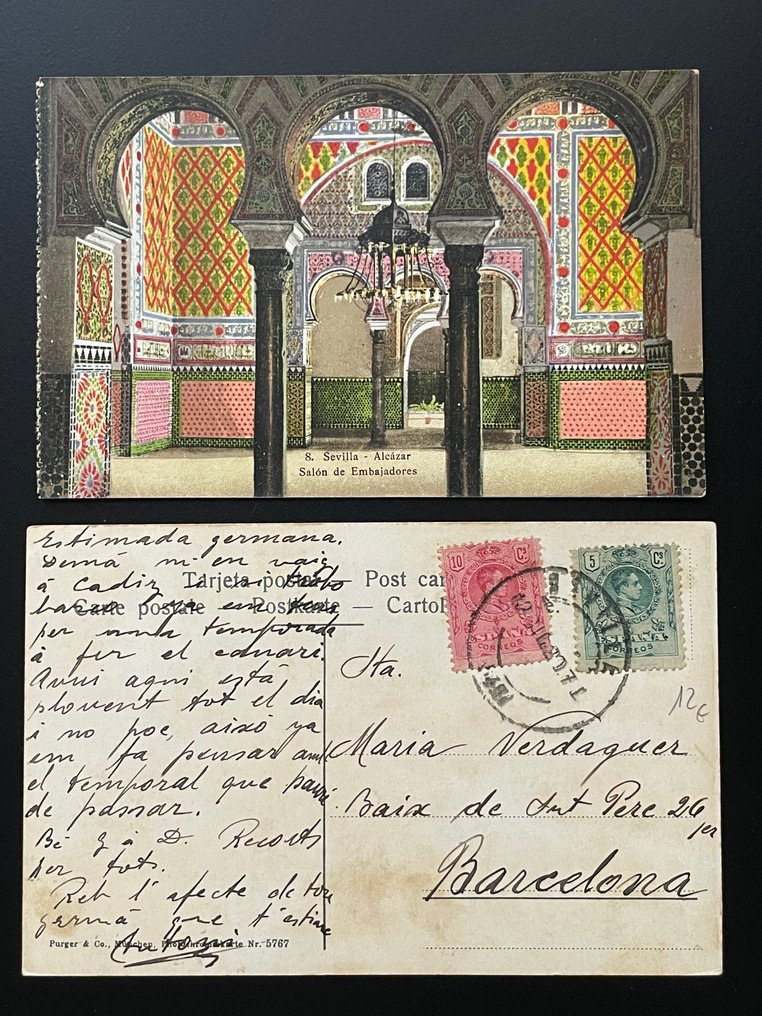 8. Sevilla - Alcázar
Salón de Embajadores
Estimada germana.
Demá m'en vaig
á Cadiz i
Tarjeta postal — Post car
Carte postale — Postkarte — Cartol
per una temporada
á fer el canari.
Avui aqui está
plovent tot el dia
i no poc, aixó ya
em fa pensar amb
el temporal que
de passar.
Bé D. Recorts
per tots.
Reb l'afecte de ton
germá que t'estima
Antoni
Purger & Co., München, Photochromiekarte Nr. 5767
10 Cs
CORREOS
5 Cs
CORREOS
12€
Sta.
Maria Verdaguer
Baix de Snt Pere 26
1er
Barcelona